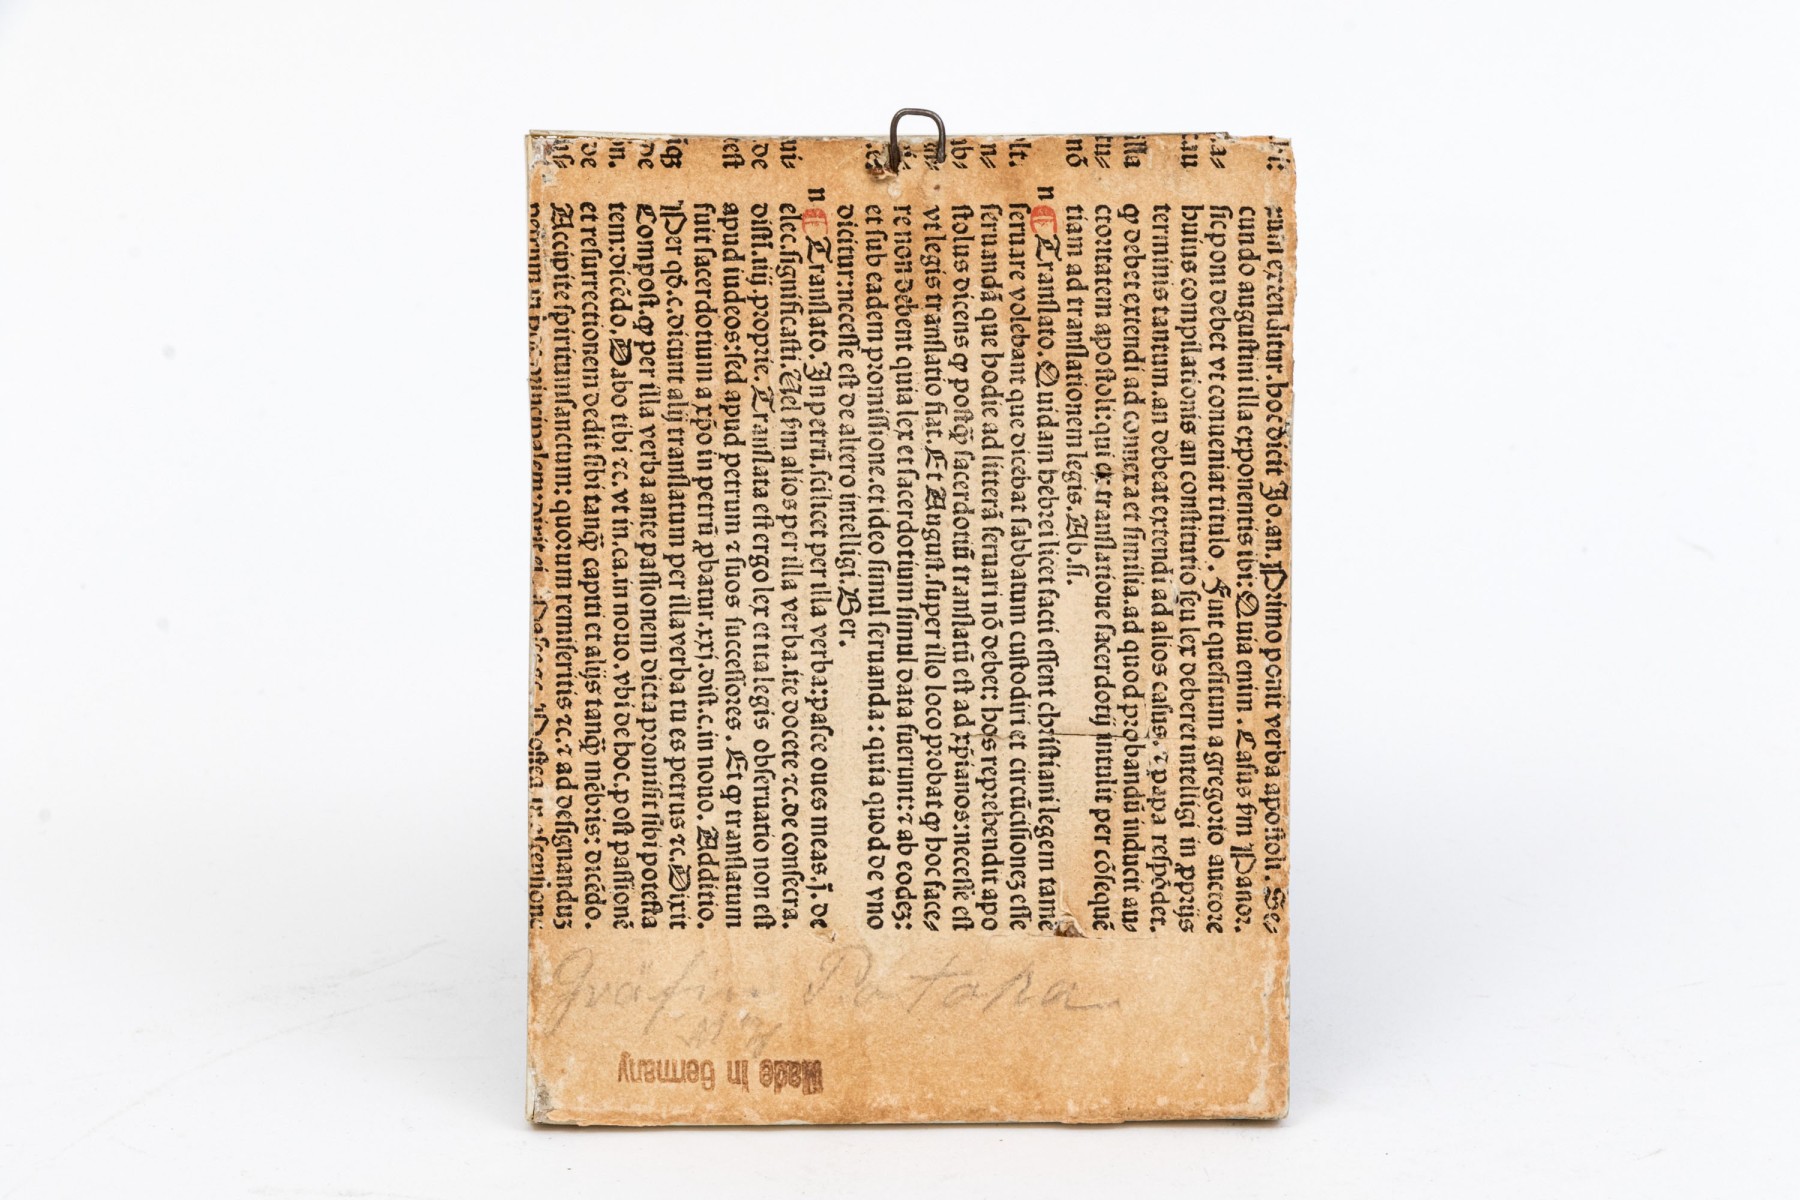 extenditur. hoc dicit Jo. an. Primo ponit verba apostoli. Se⸗
cundo augustini illa exponentis ibi: Quia enim. Casus ẜm Panor.
sic poni debet vt conueniat titulo. Fuit quesitum a gregorio auctore
huius compilationis an constitutio seu lex deberet intelligi in ꝓprijs
terminis tantum. an debeat extendi ad alios casus. ⁊ papa respōder.
ꝙ debet extendi ad cōnexa et similia. ad quod probandū inducit au⸗
ctoritatem apostoli: qui ex translatione sacerdotij intulit per cōsequē
tiam ad translationem legis. Ab. si.
n ¶ Translato. Quidam hebrei licet facti essent christiani legem tamē
seruare volebant que dicebat sabbatum custodiri et circūcisionez esse
seruandā que hodie ad litterā seruari nō debet: hos reprehendit apo
stolus dicens ꝙ postꝙ̄ sacerdotiū translatū est ad xp̄ianos: necesse est
vt legis translatio fiat. Et August. super illo loco probat ꝙ hoc face⸗
re non debent quia lex et sacerdotium simul data fuerunt: ⁊ ab eodez:
et sub eadem promissione. et ideo simul seruanda: quia quod de vno
dicitur: necesse est de altero intelligi. Ber.
n ¶ Translato. In petrū. scilicet per illa verba: pasce oues meas. j. de
elec. significasti. Uel ẜm alios per illa verba. ite docete ⁊c. de consecra.
dist. iiij. proprie. Translata est ergo lex et ita legis obseruatio non est
apud iudeos: sed apud petrum ⁊ suos successores. Et ꝙ translatum
fuit sacerdotium a xp̄o in petrū ꝓbatur. xxj. dist. c. in nouo. Additio.
Per qð. c. dicunt alij translatum per illa verba tu es petrus ⁊c. Dixit
Compost. ꝙ per illa verba ante passionem dicta promisit sibi potesta
tem: dicēdo, Dabo tibi ⁊c. vt in. ca. in nouo. vbi de hoc. post passionē
et resurrectionem dedit sibi tanꝙ̄ capiti et alijs tanꝙ̄ mēbris: dicēdo.
Accipite spiritum sanctum: quorum remiseritis ⁊c. ⁊ ad designanduz
Gräfin Potocka
Made in Germany